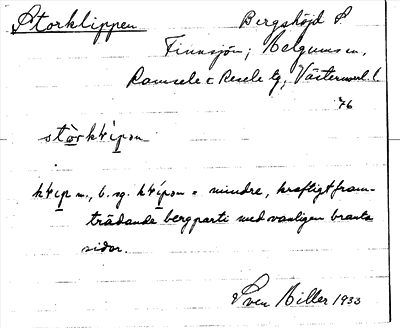 Storklippen Bergshöjd S.
Finnsjön, Helgums sn,
Ramsele o Resele tg, Västernorrl. l.
76
stòrkɬípon
kɬip m., b. sg. kɬípon = mindre, kraftigt fram-
trädande bergparti med vanligen branta
sidor.
Sven Hiller 1933